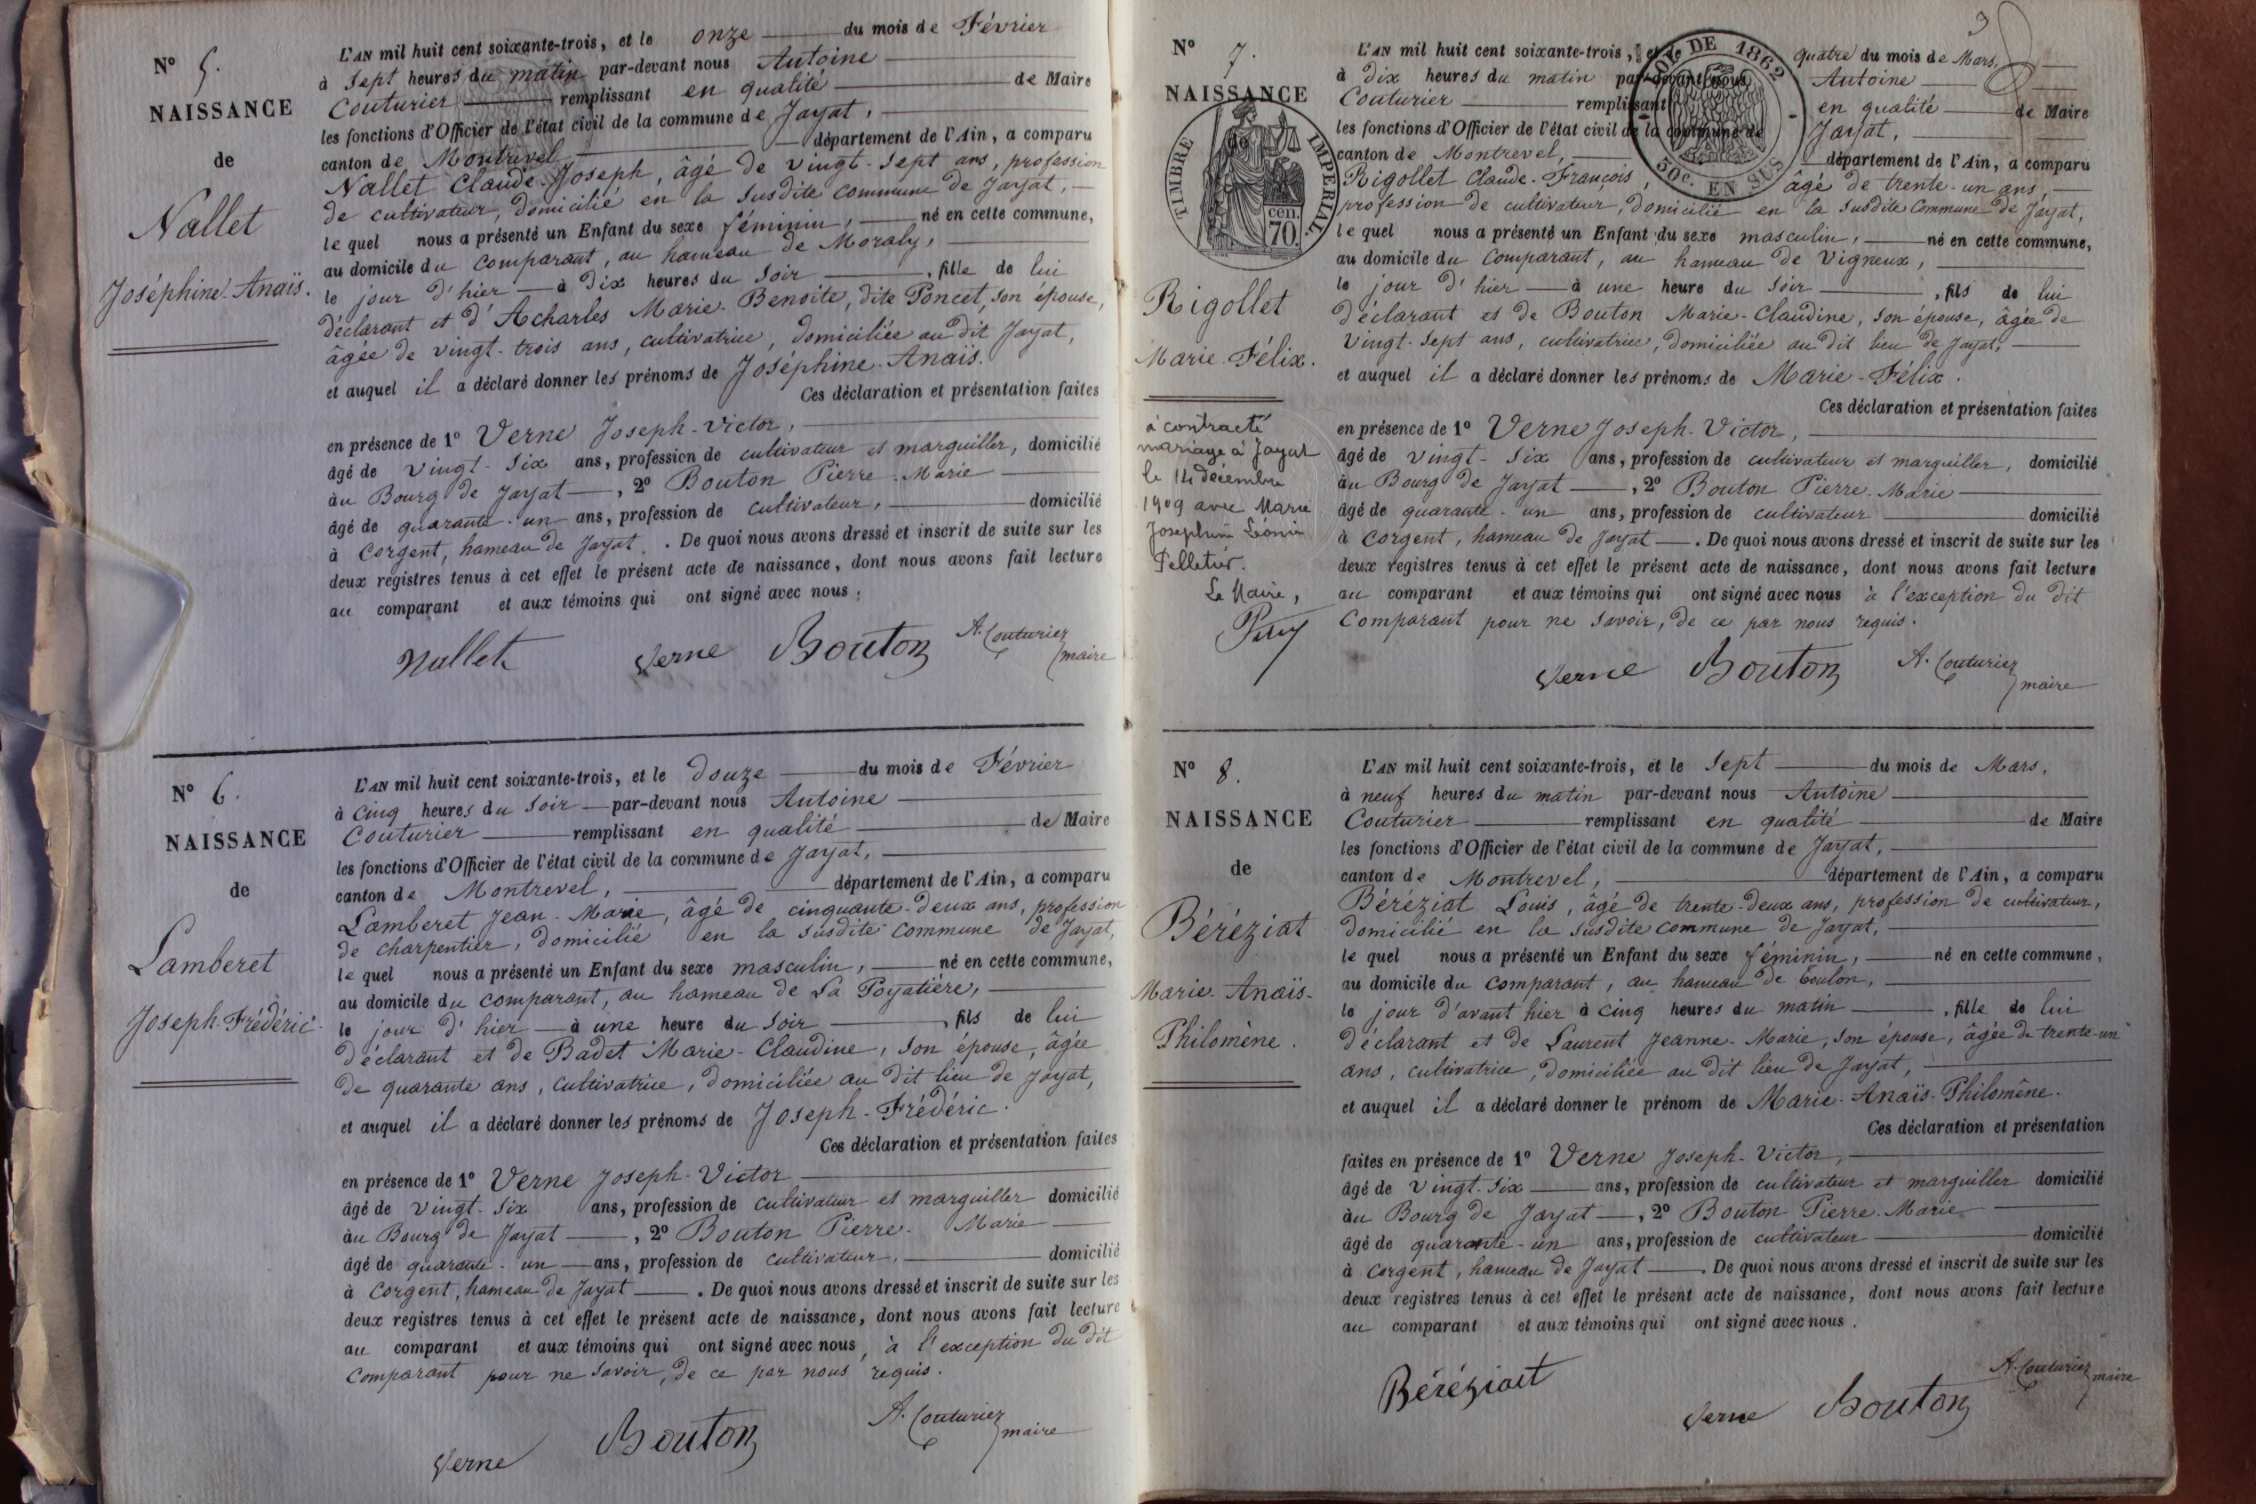 N° 5.
NAISSANCE
de
Nallet
Joséphine-Anaïs.
L'AN mil huit cent soixante-trois, et le onze du mois de Février
à sept heures du matin par-devant nous Antoine
Couturier remplissant en qualité de Maire
les fonctions d'Officier de l'état civil de la commune de Jayat,
canton de Montrevel département de l'Ain, a comparu
Nallet Claude-Joseph, âgé de vingt-sept ans, profession
de cultivateur, domicilié en la susdite commune de Jayat,
lequel nous a présenté un Enfant du sexe féminin, né en cette commune,
au domicile du comparant, au hameau de Moraly,
le jour d'hier à dix heures du soir, fille de lui
déclarant et d'Acharles Marie-Benoîte, dite Poncet, son épouse,
âgée de vingt-trois ans, cultivatrice, domiciliée au dit Jayat,
et auquel il a déclaré donner les prénoms de Joséphine-Anaïs.
Ces déclaration et présentation faites
en présence de 1° Verne Joseph-Victor,
âgé de vingt-six ans, profession de cultivateur et marguiller, domicilié
au Bourg de Jayat, 2° Bouton Pierre-Marie
âgé de quarante-un ans, profession de cultivateur, domicilié
à Corgent, hameau de Jayat. De quoi nous avons dressé et inscrit de suite sur les
deux registres tenus à cet effet le présent acte de naissance, dont nous avons fait lecture
au comparant et aux témoins qui ont signé avec nous.
Nallet Verne Bouton A. Couturier
maire
N° 6.
NAISSANCE
de
Lamberet
Joseph-Frédéric
L'AN mil huit cent soixante-trois, et le douze du mois de Février
à cinq heures du soir par-devant nous Antoine
Couturier remplissant en qualité de Maire
les fonctions d'Officier de l'état civil de la commune de Jayat,
canton de Montrevel, département de l'Ain, a comparu
Lamberet Jean-Marie, âgé de cinquante-deux ans, profession
de charpentier, domicilié en la susdite commune de Jayat,
lequel nous a présenté un Enfant du sexe masculin, né en cette commune,
au domicile du comparant, au hameau de La Poyatière,
le jour d'hier à une heure du soir, fils de lui
déclarant et de Badet Marie-Claudine, son épouse, âgée
de quarante ans, cultivatrice, domiciliée au dit lieu de Jayat,
et auquel il a déclaré donner les prénoms de Joseph-Frédéric.
Ces déclaration et présentation faites
en présence de 1° Verne Joseph-Victor
âgé de vingt-six ans, profession de cultivateur et marguiller domicilié
au Bourg de Jayat, 2° Bouton Pierre-Marie
âgé de quarante-un ans, profession de cultivateur, domicilié
à Corgent, hameau de Jayat. De quoi nous avons dressé et inscrit de suite sur les
deux registres tenus à cet effet le présent acte de naissance, dont nous avons fait lecture
au comparant et aux témoins qui ont signé avec nous, à l'exception du dit
comparant pour ne savoir, de ce par nous requis.
Verne Bouton A. Couturier
maire
3
N° 7.
NAISSANCE
de
TIMBRE IMPERIAL
cen.
70.
Rigollet
Marie-Félix.
à contracté
mariage à Jayat
le 14 décembre
1909 avec Marie
Joséphine Léonie
Pelletier.
Le Maire,
LOI DE 1862
50c. EN SUS
L'AN mil huit cent soixante-trois, et le quatre du mois de Mars,
à dix heures du matin par-devant nous Antoine
Couturier remplissant en qualité de Maire
les fonctions d'Officier de l'état civil de la commune de Jayat,
canton de Montrevel, département de l'Ain, a comparu
Rigollet Claude-François, âgé de trente-un ans,
profession de cultivateur, domicilié en la susdite commune de Jayat,
lequel nous a présenté un Enfant du sexe masculin, né en cette commune,
au domicile du comparant, au hameau de Vigneux,
le jour d'hier à une heure du soir, fils de lui
déclarant et de Bouton Marie-Claudine, son épouse, âgée de
vingt-sept ans, cultivatrice, domiciliée au dit lieu de Jayat,
et auquel il a déclaré donner les prénoms de Marie-Félix.
Ces déclaration et présentation faites
en présence de 1° Verne Joseph-Victor,
âgé de vingt-six ans, profession de cultivateur et marguiller, domicilié
au Bourg de Jayat, 2° Bouton Pierre-Marie
âgé de quarante-un ans, profession de cultivateur domicilié
à Corgent, hameau de Jayat. De quoi nous avons dressé et inscrit de suite sur les
deux registres tenus à cet effet le présent acte de naissance, dont nous avons fait lecture
au comparant et aux témoins qui ont signé avec nous à l'exception du dit
comparant pour ne savoir, de ce par nous requis.
Verne Bouton A. Couturier
maire
N° 8.
NAISSANCE
de
Béréziat
Marie-Anaïs-
Philomène.
L'AN mil huit cent soixante-trois, et le sept du mois de Mars,
à neuf heures du matin par-devant nous Antoine
Couturier remplissant en qualité de Maire
les fonctions d'Officier de l'état civil de la commune de Jayat,
canton de Montrevel, département de l'Ain, a comparu
Béréziat Louis, âgé de trente-deux ans, profession de cultivateur,
domicilié en la susdite commune de Jayat,
lequel nous a présenté un Enfant du sexe féminin, né en cette commune,
au domicile du comparant, au hameau de Coulon,
le jour d'avant hier à cinq heures du matin, fille de lui
déclarant et de Laurent Jeanne-Marie, son épouse, âgée de trente-un
ans, cultivatrice, domiciliée au dit lieu de Jayat,
et auquel il a déclaré donner le prénom de Marie-Anaïs-Philomène.
Ces déclaration et présentation
faites en présence de 1° Verne Joseph-Victor,
âgé de vingt-six ans, profession de cultivateur et marguiller domicilié
au Bourg de Jayat, 2° Bouton Pierre-Marie
âgé de quarante-un ans, profession de cultivateur domicilié
à Corgent, hameau de Jayat. De quoi nous avons dressé et inscrit de suite sur les
deux registres tenus à cet effet le présent acte de naissance, dont nous avons fait lecture
au comparant et aux témoins qui ont signé avec nous.
Béréziat Verne Bouton A. Couturier
maire